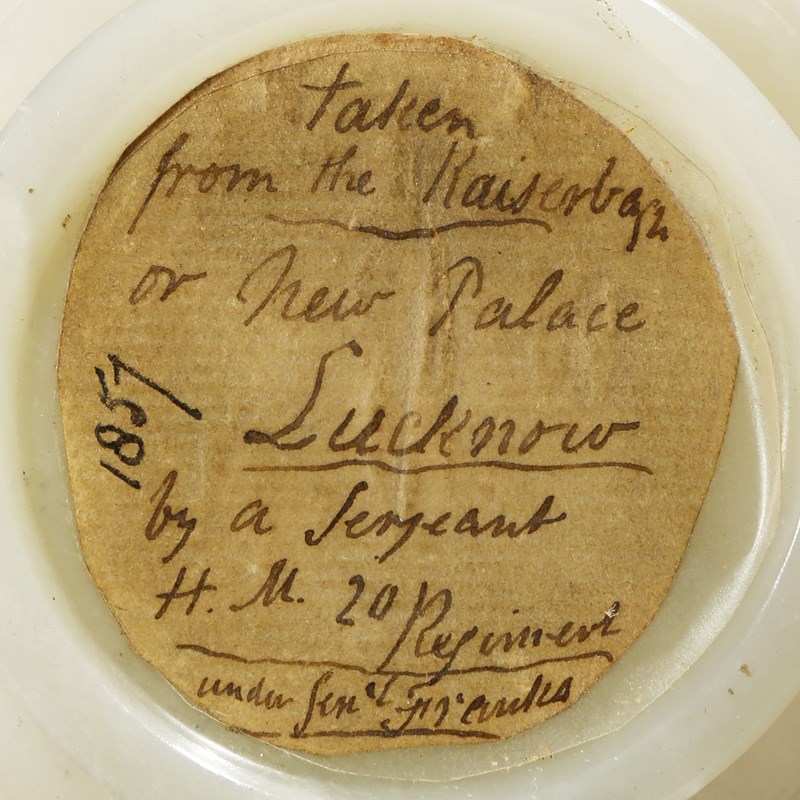 taken
from the Kaiserbagh
or New Palace
Lucknow
1857
by a Serjeant
H. M. 20 Regiment
under Genl Franks